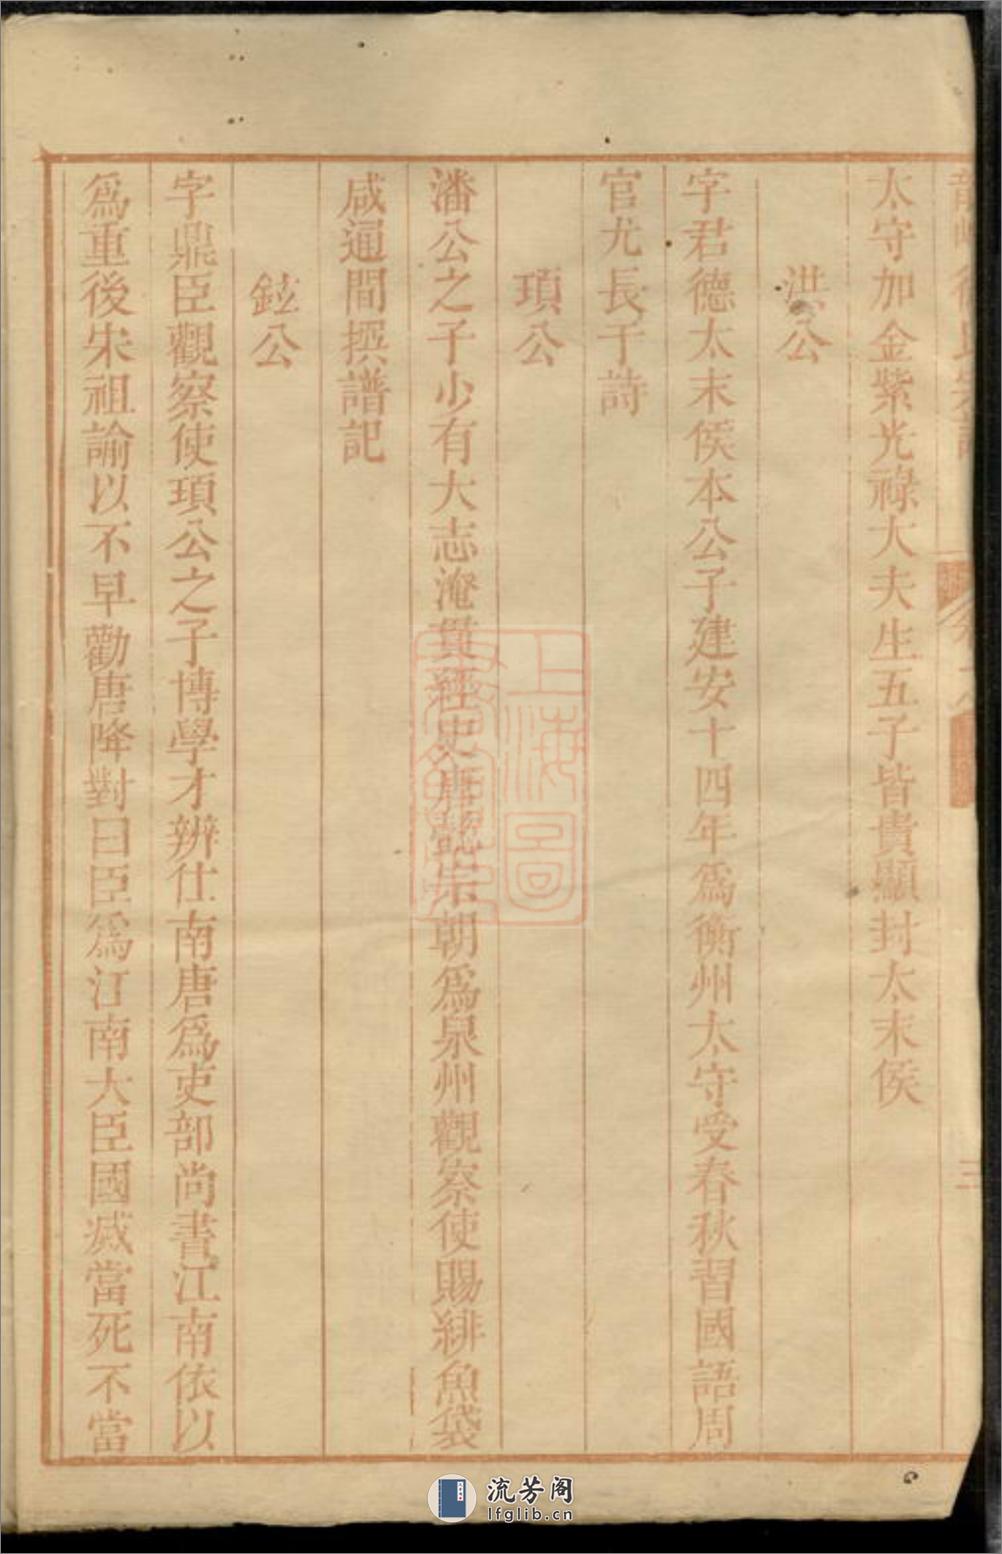 太守加金紫光祿大夫生五子皆貴顯封太末侯
洪公
字君德太末侯本公子建安十四年爲衡州太守受春秋習國語周
官尤長于詩
頊公
潘公之子少有大志淹貫經史唐懿宗朝爲泉州觀察使賜緋魚袋
咸通間撰譜記
鉉公
字鼎臣觀察使頊公之子博學才辨仕南唐爲吏部尚書江南依以
爲重後宋祖諭以不早勸唐降對曰臣爲江南大臣國滅當死不當
三
上海圖
流芳阁
lfglib.cn